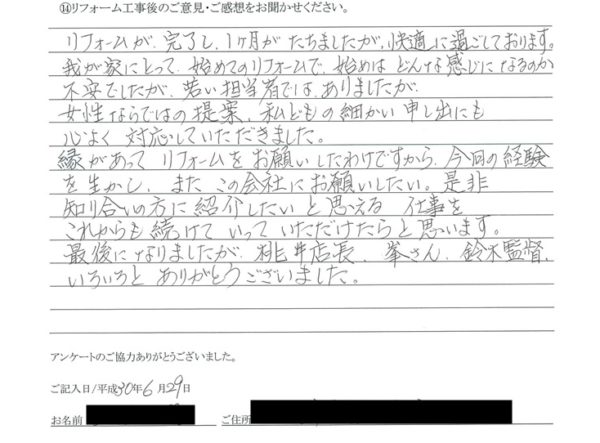 ⑭リフォーム工事後のご意見・ご感想をお聞かせください。
リフォームが、完了し、1ヶ月がたちましたが、快適に過ごしております。
我が家にとって、始めてのリフォームで、始めはどんな感じになるのか
不安でしたが、若い担当者ではありましたが、
女性ならではの提案、私どもの細かい申し出にも
心よく対応していただきました。
縁があってリフォームをお願いしたわけですから、今回の経験
を生かし、またこの会社にお願いしたい。是非
知り合いの方に紹介したいと思える仕事を
これからも続けていっていただけたらと思います。
最後になりましたが、桃井店長、峯さん、鈴木監督、
いろいろとありがとうございました。
アンケートのご協力ありがとうございました。
ご記入日/平成30年6月29日
お名前 ご住所